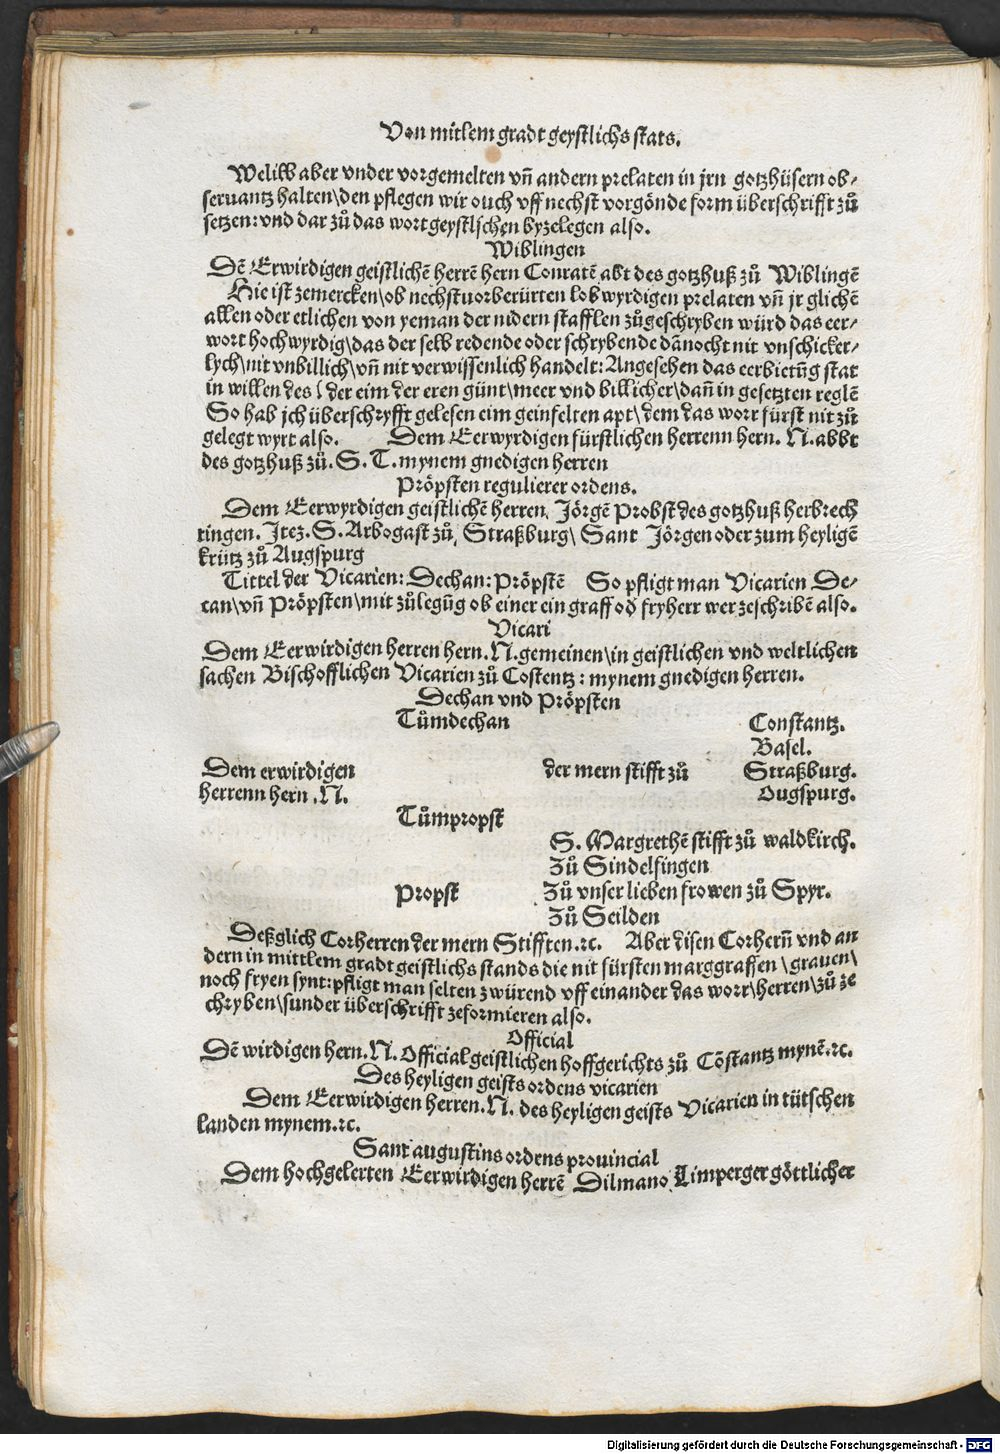 Von mitlem gradt geystlichs stats.
Welikb aber vnder vorgemelten vn̄ andern prelaten in jrn gotzhüsern ob⸗
seruantz halten\den pflegen wir ouch vff nechst vorgönde form überschrifft zů
setzen: vnd dar zů das wort geystlichen byzelegen also.
Wiblingen
Dē Erwirdigen geistlichē herrē hern Conratē abt des gotzhuß zů Wiblingē
Hie ist zemercken\ob nechstuorberürten lobwyrdigen prelaten vn̄ jr glichē
allen oder etlichen von yeman der nidern stafflen zůgeschryben würd das eer⸗
wort hochwyrdig\das der selb redende oder schrybende dānocht nit vnschicker⸗
lych\nit vnbillich\vn̄ nit verwissenlich handelt: Angesehen das eerbietūg stat
in willen des\der eim der eren günt\meer vnd billicher\dan̄ in gesetzten reglē
So hab jch überschryfft gelesen eim geinfelten apt\dem das worr fürst nit zů
gelegt wyrt also. Dem Eerwyrdigen fürstlichen herrenn hern. N. abbt
des gotzhuß zů. S. T. mynem gnedigen herren
Pröpsten regulierer ordens.
Dem Eerwyrdigen geistlichē herren, Jörgē Probst des gotzhuß herbrech
tingen. Jtez. S. Arbogast zů, Straßburg\ Sant Jörgen oder zum heyligē
krütz zů Augspurg
Tittel der Vicarien: Dechan: Pröpstē So pfligt man Vicarien De⸗
can\vn̄ Pröpsten\mit zůlegūg ob einer ein graff od̓ fryherr wer zeschribē also.
Vicari
Dem Eerwirdigen herren hern. N. gemeinen\in geistlichen vnd weltlichen
sachen Bischofflichen Vicarien zů Costentz: mynem gnedigen herren.
Dechan vnd Pröpsten
Tůmdechan Constantz.
Basel.
Dem erwirdigen der mern stifft zů Straßburg.
herrenn hern. N. Ougspurg.
Tůmpropst
S. Margrethē stifft zů waldkirch.
Zů Sindelfingen
Propst Zů vnser lieben frowen zů Spyr.
Zů Seilden
Deßglich Corherren der mern Stifften.ꝛc. Aber disen Corhern̄ vnd an
dern in mittlem gradt geistlichs stands die nit fürsten marggraffen\grauen\
noch fryen synt: pfligt man selten zwürend vff einander das worr\herren\zů ze
chryben\sunder überschrifft zeformieren also.
Official
Dē wirdigen hern. N. Official geistlichen hoffgerichts zů Cōstantz mynē.ꝛc.
Des heyligen geists ordens vicarien
Dem Eerwirdigen herren. N. des heyligen geists Vicarien in tütschen
landen mynem.ꝛc.
Sant augustins ordens prouincial
Dem hochgelerten Eerwirdigen herrē Dilmano Limperger göttlicher
Digitalisierung gefördert durch die Deutsche Forschungsgemeinschaft - DFG